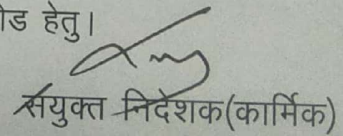 ोड हेतु।
संयुक्त निदेशक(कार्मिक)